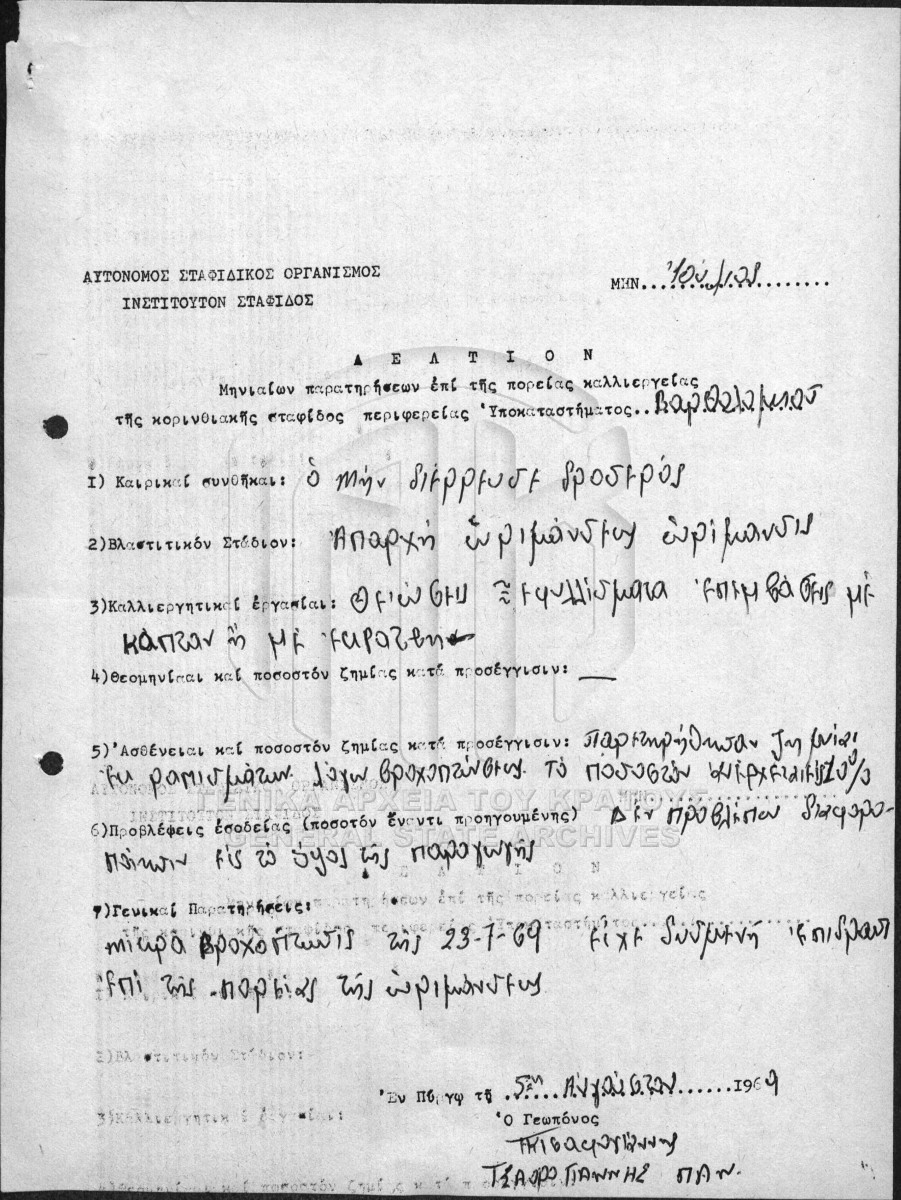 ΑΥΤΟΝΟΜΟΣ ΣΤΑΦΙΔΙΚΟΣ ΟΡΓΑΝΙΣΜΟΣ
ΙΝΣΤΙΤΟΥΤΟΝ ΣΤΑΦΙΔΟΣ
ΜΗΝ...Ἰούλιος.........
Δ Ε Λ Τ Ι Ο Ν
Μηνιαίων παρατηρήσεων ἐπί τῆς πορείας καλλιεργείας
τῆς κορινθιακῆς σταφίδος περιφερείας Ὑποκαταστήματος..Βαρθολομιοῦ
1) Καιρικαί συνθῆκαι: ὁ μήν διέρρευσε δροσερός
2)Βλαστιτικόν Στάδιον: Ἀπαρχή ὡριμάνσεως ὡρίμανσις
3)Καλλιεργητικαί ἐργασίαι: Θειώσεις ξεφυλλίσματα ἐπεμβάσεις μέ
κάπταν ἤ μέ
4)Θεομηνίααι καί ποσοστόν ζημίας κατά προσέγγισιν: —
5)Ἀσθένειαι καί ποσοστόν ζημίας κατά προσέγγισιν: Παρετηρήθησαν ζημίαι
ἐκ ραπισμάτων λόγω βροχοπτώσεως. τό ποσοστόν ἀνέρχεται εἰς 10%
ΓΕΝΙΚΑ ΑΡΧΕΙΑ ΤΟΥ ΚΡΑΤΟΥΣ
GENERAL STATE ARCHIVES
6)Προβλέψεις ἐσοδείας (ποσοτόν ἔναντι προηγουμένης) Δέν προβλέπω διαφορο-
ποίησιν εἰς τό ὕψος τῆς παραγωγῆς
7)Γενικαί Παρατηρήσεις:
μικρά βροχόπτωσις τῆς 23-7-69 εἶχε δυσμενῆ ἐπίδρασι
ἐπί τῆς πορείας τῆς ὡριμάνσεως
2)Βλαστιτικόν Στάδιον:
3)Καλλιεργητικαί ἐργασίαι:
Ἐν Πύργῳ τῇ .5ην..Αὐγούστου......1969
Ὁ Γεωπόνος
ΤΣΑΟΥΣΟΓΙΑΝΝΗΣ ΠΑΝ.